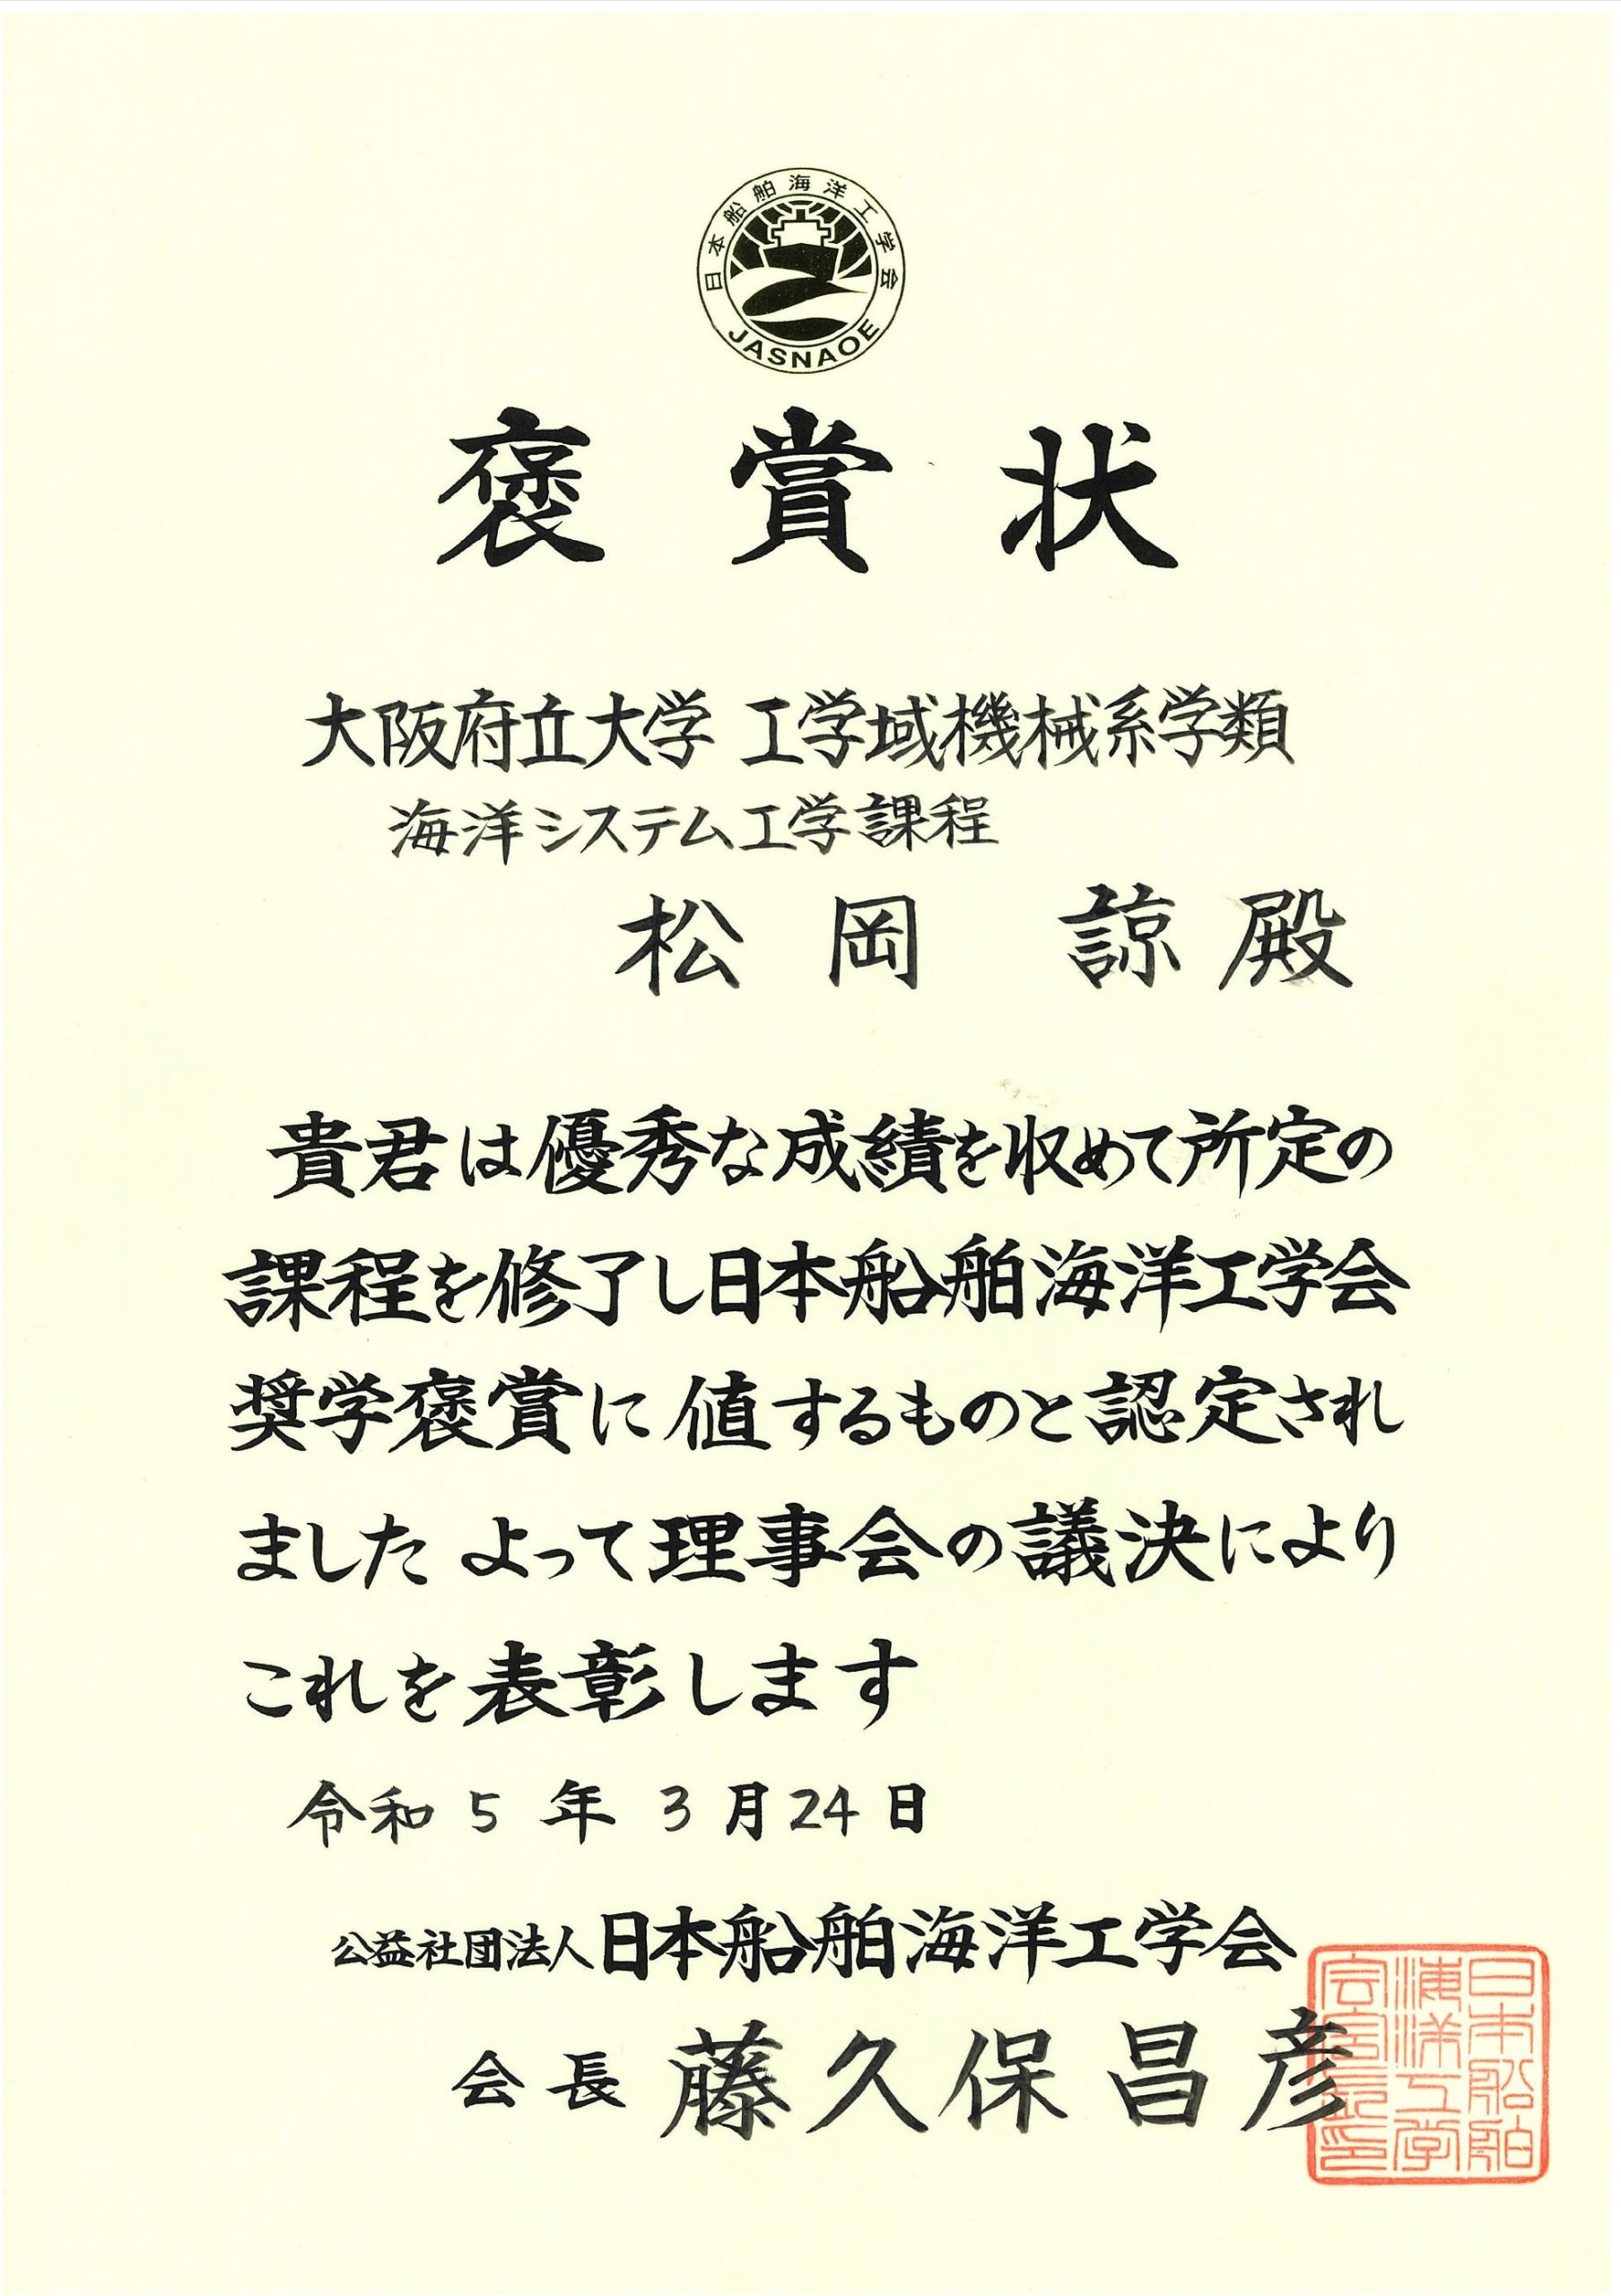 日本船舶海洋工学会
JASNAOE
褒賞状
大阪府立大学 工学域機械系学類
海洋システム工学課程
松岡 諒殿
貴君は優秀な成績を収めて所定の
課程を修了し日本船舶海洋工学会
奨学褒賞に値するものと認定され
ました よって理事会の議決により
これを表彰します
令和 5 年 3 月 24 日
公益社団法人日本船舶海洋工学会
会長 藤久保昌彦
日本船舶
海洋工学
会会長印